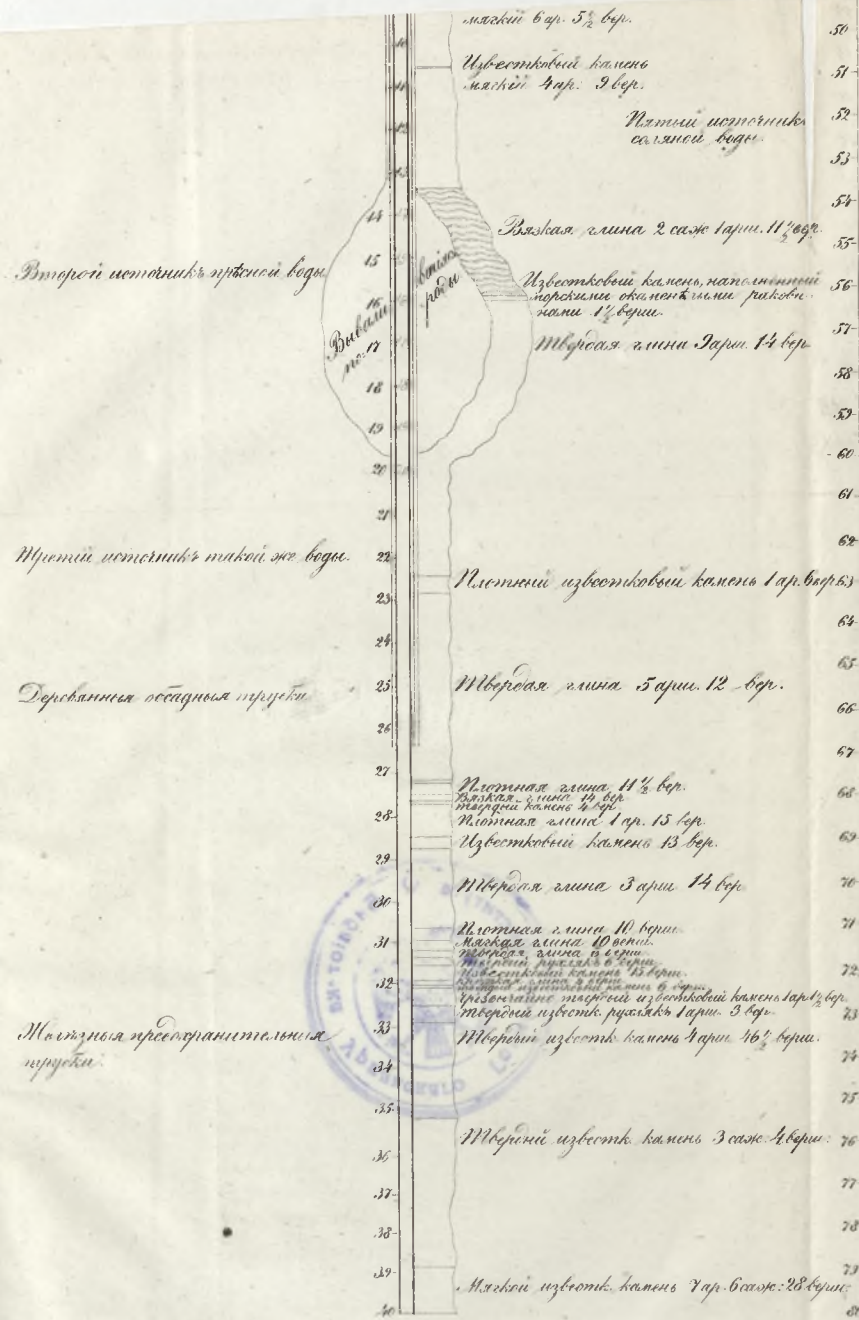 мягкій 6 ар. 5½ вер.
Известковый камень
мягкій 4 ар: 9 вер.
Пятый источникъ
соляной воды.
Вязкая глина 2 саж 1 арш. 11½ вер.
Второй источникъ прѣсной воды
Вывали вшіяся
по роды
Известковый камень, наполненный
морскими окаменѣлыми ракови-
нами 1½ верш.
Твердая глина 9 арш. 14 вер
Третій источникъ такой же воды.
Плотный известковый камень 1 ар. 6 вер.
Деревянныя осадныя трубки
Твердая глина 5 арш. 12 вер.
Плотная глина 11½ вер.
Вязкая глина 14 вер
твердый камень 4 вер
Плотная глина 1 ар. 15 вер.
Известковый камень 13 вер.
Твердая глина 3 арш 14 вер
Плотная глина 10 верш
Мягкая глина 10 верш.
Твердая глина верш.
Твердый рухлякъ 6 верш.
Известковый камень 15 верш.
глина верш.
известковый камень 6 верш.
Чрезвычайно твердый известковый камень 1 ар 1½ вер
твердый известк. рухлякъ 1 арш. 3 вер.
Желѣзныя предохранительныя
трубки.
Твердый известк камень 4 арш 46½ верш.
Твердый известк. камень 3 саж. 4 верш.
Мягкой известк. камень 7 ар. 6 саж: 28 верш:
10
11
12
13
14
15
16
17
18
19
20
21
22
23
24
25
26
27
28
29
30
31
32
33
34
35
36
37
38
39
40
50
51
52
53
54
55
56
57
58
59
60
61
62
63
64
65
66
67
68
69
70
71
72
73
74
75
76
77
78
79
80